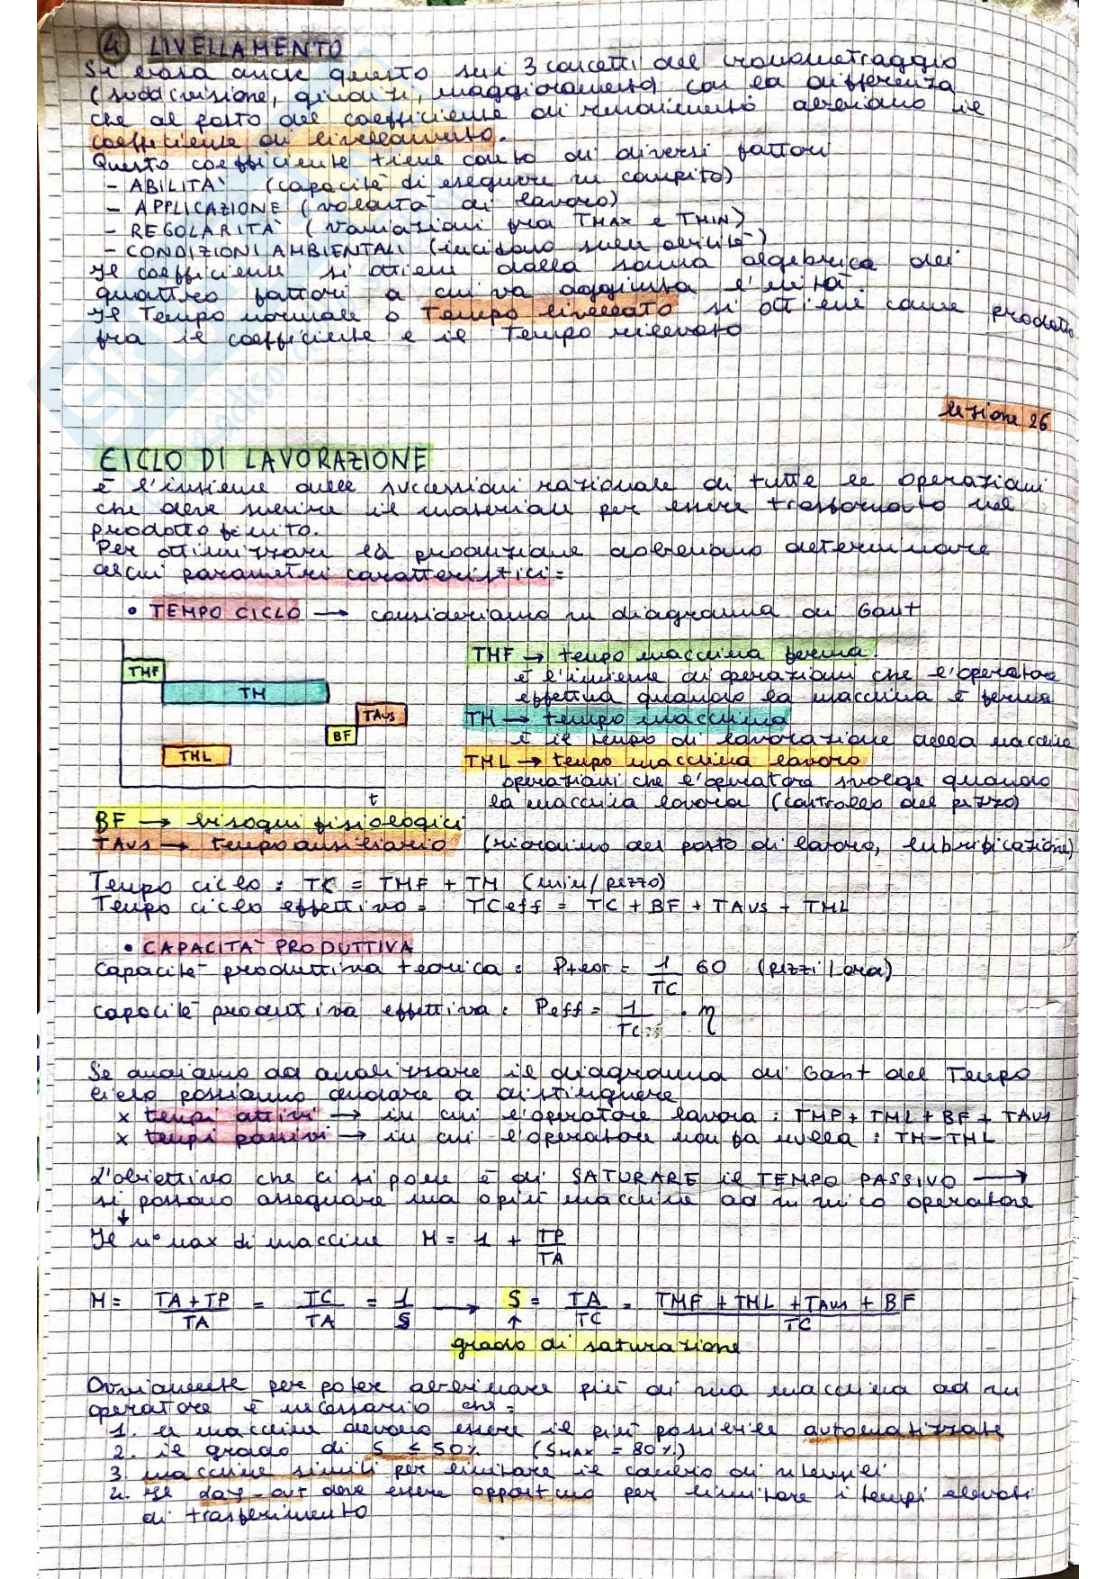 4 LIVELLAMENTO
Si basa anche questo sui 3 concetti del cronometraggio
(suddivisione, giudizi, maggioramento) con la differenza
che al posto del coefficiente di rendimento abbiamo il
coefficiente di livellamento.
Questo coefficiente tiene conto di diversi fattori
- ABILITA' (capacità di eseguire un compito)
- APPLICAZIONE (volontà di lavoro)
- REGOLARITA' (variazioni fra TMAX e TMIN)
- CONDIZIONI AMBIENTALI (incidono sull'abilità)
Il coefficiente si ottiene dalla somma algebrica dei
quattro fattori a cui va aggiunta l'unità.
Il Tempo normale o Tempo livellato si ottiene come prodotto
fra il coefficiente e il Tempo rilevato
lezione 26
CICLO DI LAVORAZIONE
È l'insieme delle successioni razionale di tutte le operazioni
che deve subire il materiale per essere trasformato nel
prodotto finito.
Per ottimizzare la produzione dobbiamo determinare
alcuni parametri caratteristici:
• TEMPO CICLO → consideriamo un diagramma di Gant
TMF
TM
TAus
BF
TML
t
TMF → tempo macchina ferma.
è l'insieme di operazioni che l'operatore
effettua quando la macchina è ferma
TM → tempo macchina
è il tempo di lavorazione della macchina
TML → tempo macchina lavoro
operazioni che l'operatore svolge quando
la macchina lavora (controllo del pezzo)
BF → bisogni fisiologici
TAus → tempo ausiliario (riordino del posto di lavoro, lubrificazione)
Tempo ciclo: TC = TMF + TM (min/pezzo)
Tempo ciclo effettivo = TCeff = TC + BF + TAUS + TML
• CAPACITA' PRODUTTIVA
Capacità produttiva teorica: Pteor = 1/TC 60 (pezzi/ora)
Capacità produttiva effettiva: Peff = 1/TCeff · η
Se andiamo ad analizzare il diagramma di Gant del Tempo
ciclo possiamo andare a distinguere
x tempi attivi → in cui l'operatore lavora: TMF + TML + BF + TAUS
x tempi passivi → in cui l'operatore non fa nulla: TM-TML
L'obiettivo che ci si pone è di SATURARE il TEMPO PASSIVO →
si possono assegnare una o più macchine ad un unico operatore
↓
Il n° max di macchine M = 1 + TP/TA
M = TA + TP/TA = TC/TA = 1/S → S = TA/TC = TMF + TML + TAus + BF/TC
↑
grado di saturazione
Ovviamente per poter abbinare più di una macchina ad un
operatore è necessario che:
1. le macchine devono essere il più possibile automatizzate
2. il grado di S ≤ 50% (SMAX = 80%)
3. macchine simili per limitare il cambio di utensili
4. Il lay-out deve essere opportuno per limitare i tempi elevati
di trasferimento